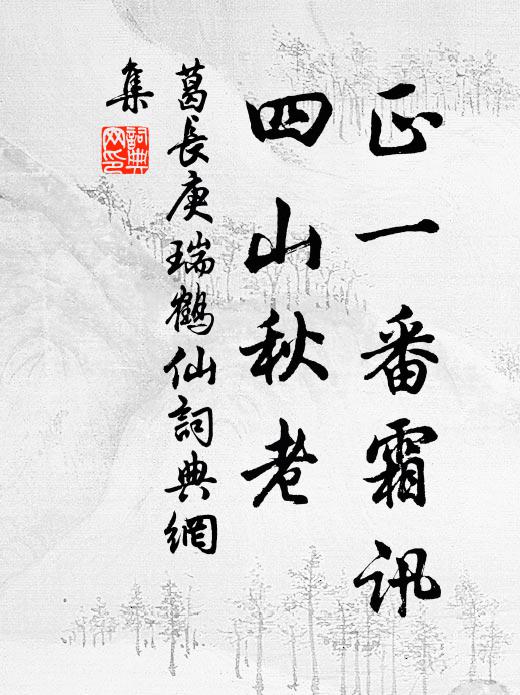 正一番霜訊
四山秋老
葛長庚瑞鶴仙詞典網
集
詞典網印